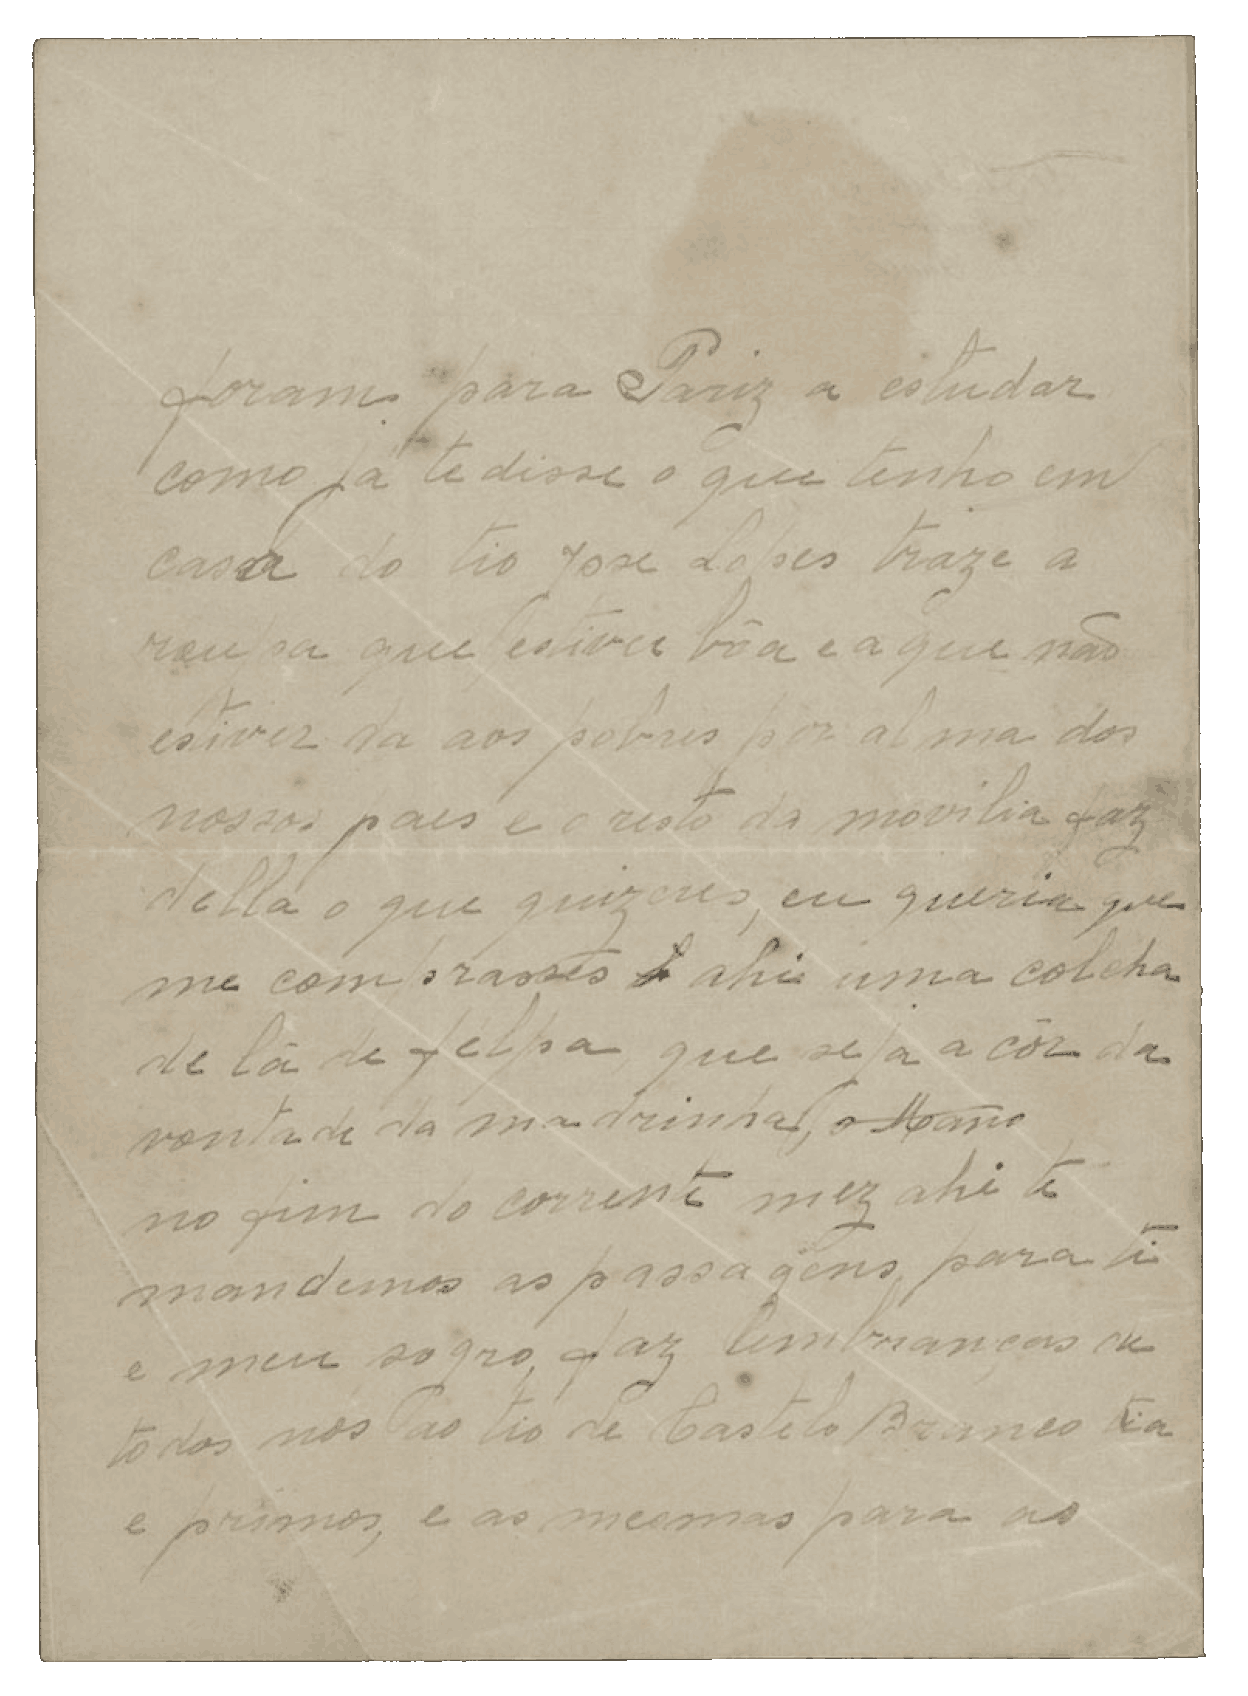 foram para Pariz a estudar
como já te disse o que tenho em
casa do tio Jose Lopes traze a
roupa que estiver bôa e a que não
estiver da aos pobres por alma dos
nossos paes e o resto da movilia faz
della o que quizeres, eu queria que
me comprasses ahi uma colcha
de lã de felpa que seja a côr da
vontade da madrinha, o Mano
no fim do corrente mez ahi te
mandemos as passagens para ti
e meu sogro, faz lembranças de
todos nós ao tio de Castelo Branco tia
e primos, e as mesmas para as